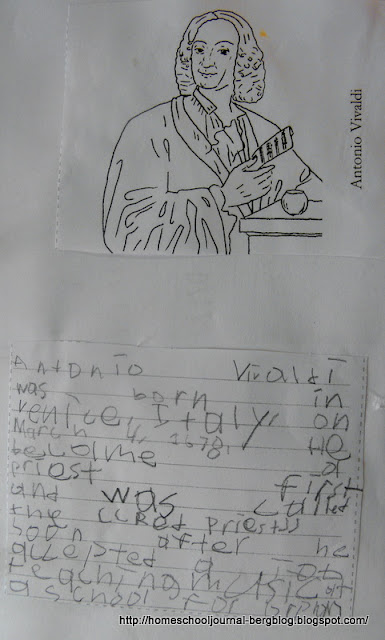 Antonio Vivaldi
Antonio Vivaldi
was born in
venice, Italy, on
March 4, 1678. He
became a
priest first
and was called
the ((Red priest))
soon after he
accepted a job
teaching music at
a school for
http://homeschooljournal-bergblog.blogspot.com/